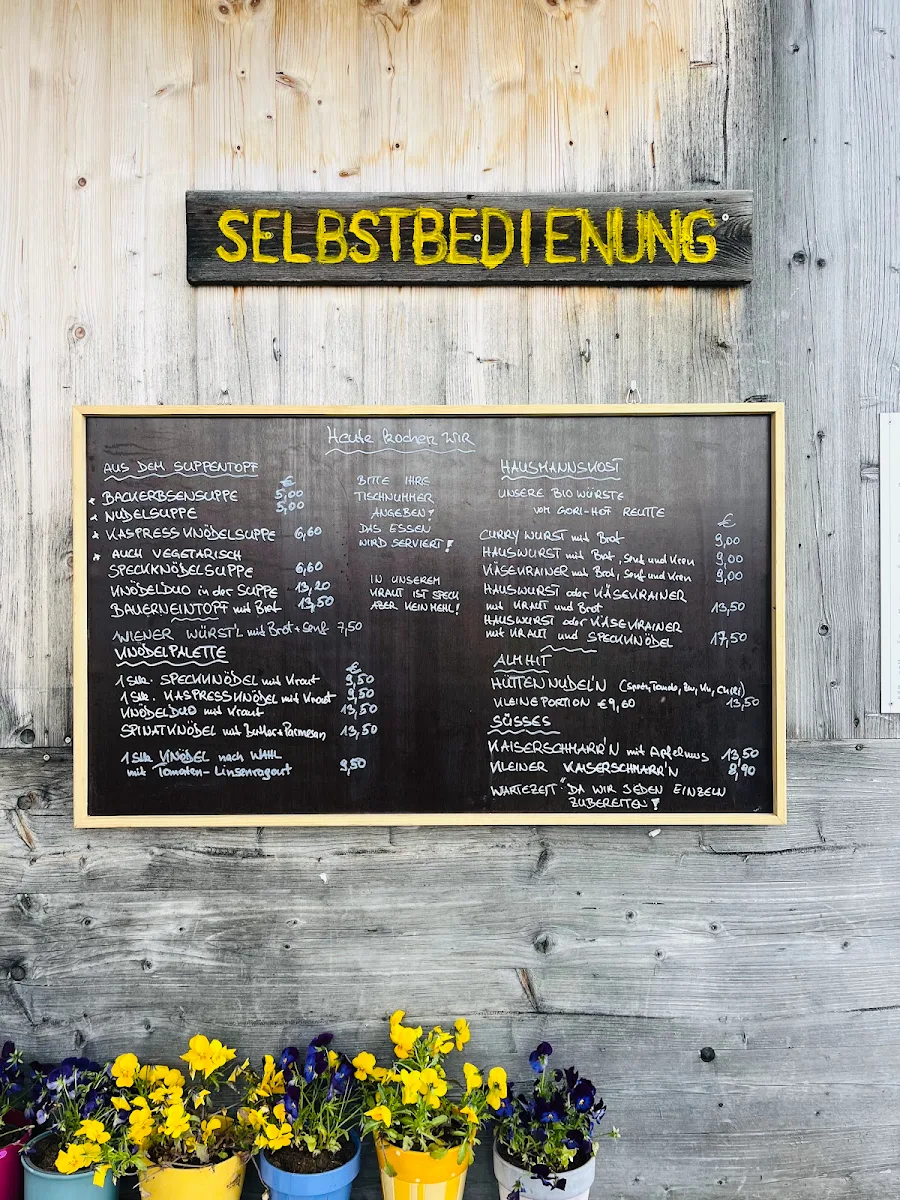 SELBSTBEDIENUNG
Heute kochen WIR
AUS DEM SUPPENTOPF
€
* BACKERBSENSUPPE 5,00
* NUDELSUPPE 5,00
* KASPRESSKNÖDELSUPPE 6,60
* AUCH VEGETARISCH
SPECKKNÖDELSUPPE 6,60
KNÖDELDUO in der SUPPE 13,20
BAUERNEINTOPF mit Brot 13,50
WIENER WÜRST'L mit Brot + Senf 7,50
KNÖDELPALETTE
€
1 Stk. SPECKKNÖDEL mit Kraut 9,50
1 Stk. KASPRESSKNÖDEL mit Kraut 9,50
KNÖDELDUO mit Kraut 13,50
SPINATKNÖDEL mit Butter + Parmesan 13,50
1 Stk KNÖDEL nach WAHL
mit Tomaten-Linsenragout 9,50
BITTE IHRE
TISCHNUMMER
ANGEBEN!
DAS ESSEN
WIRD SERVIERT!
IN UNSEREM
KRAUT IST SPECK
ABER KEIN MEHL!
HAUSMANNSKOST
UNSERE BIO WÜRSTE
vom GORI-HOF REUTTE
€
CURRYWURST mit Brot 9,00
HAUSWURST mit Brot, Senf und Kren 9,00
KÄSEKRAINER mit Brot, Senf und Kren 9,00
HAUSWURST oder KÄSEKRAINER
mit KRAUT und Brot 13,50
HAUSWURST oder KÄSEKRAINER
mit KRAUT und SPECKKNÖDEL 17,50
ALMHIT
HÜTTENNUDEL'N (Speck, Tomate, Chili) 13,50
KLEINE PORTION € 9,60
SÜSSES
KAISERSCHMARR'N mit Apfelmus 13,50
KLEINER KAISERSCHMARR'N 8,90
WARTEZEIT" DA WIR JEDEN EINZELN
ZUBEREITEN!